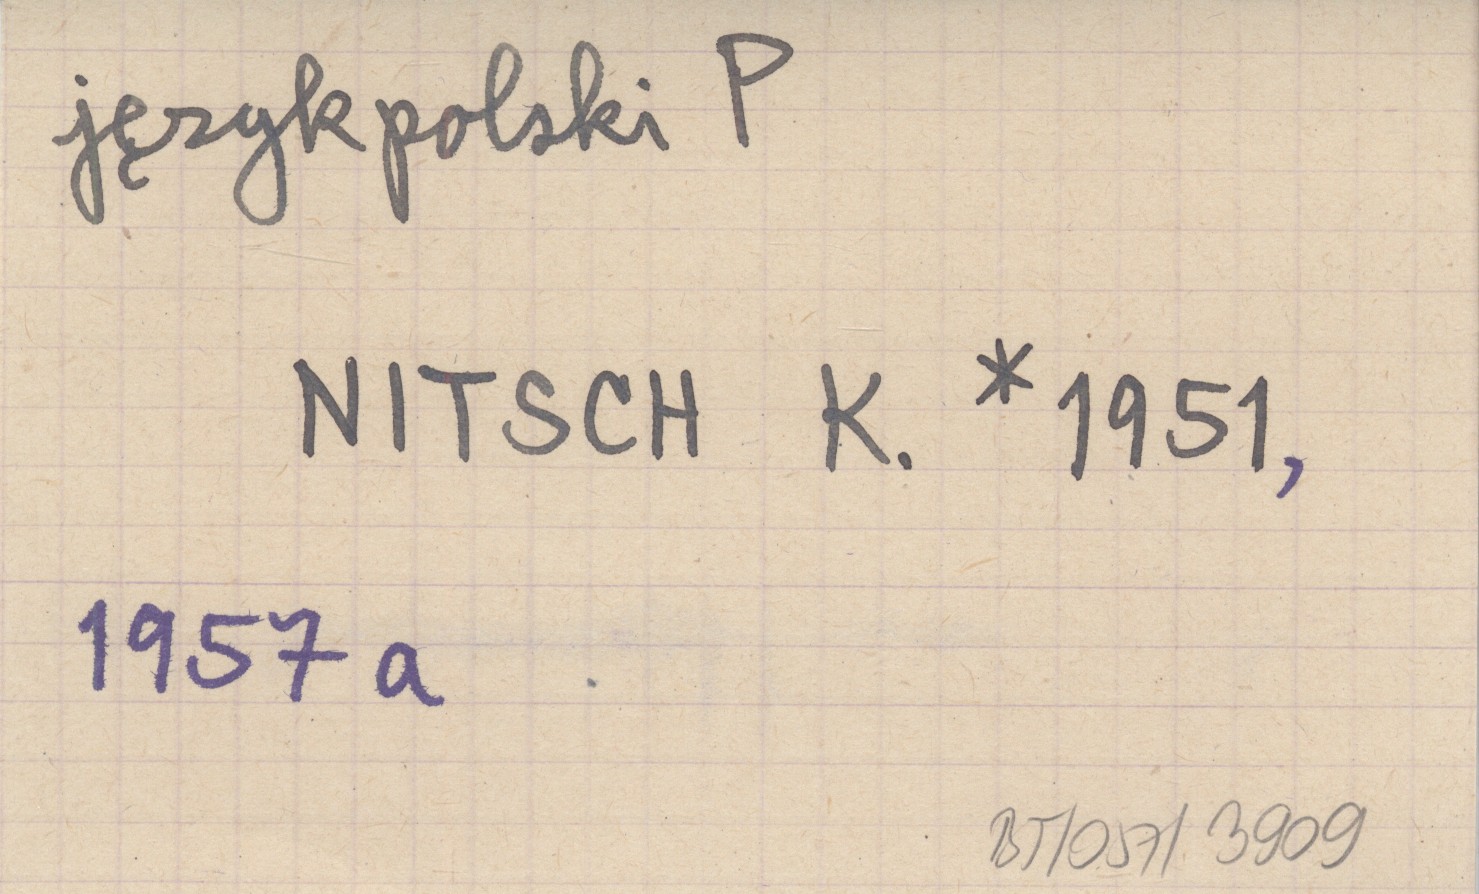 język polski P
NITSCH K. *1951,
1957a
BT/057/3909